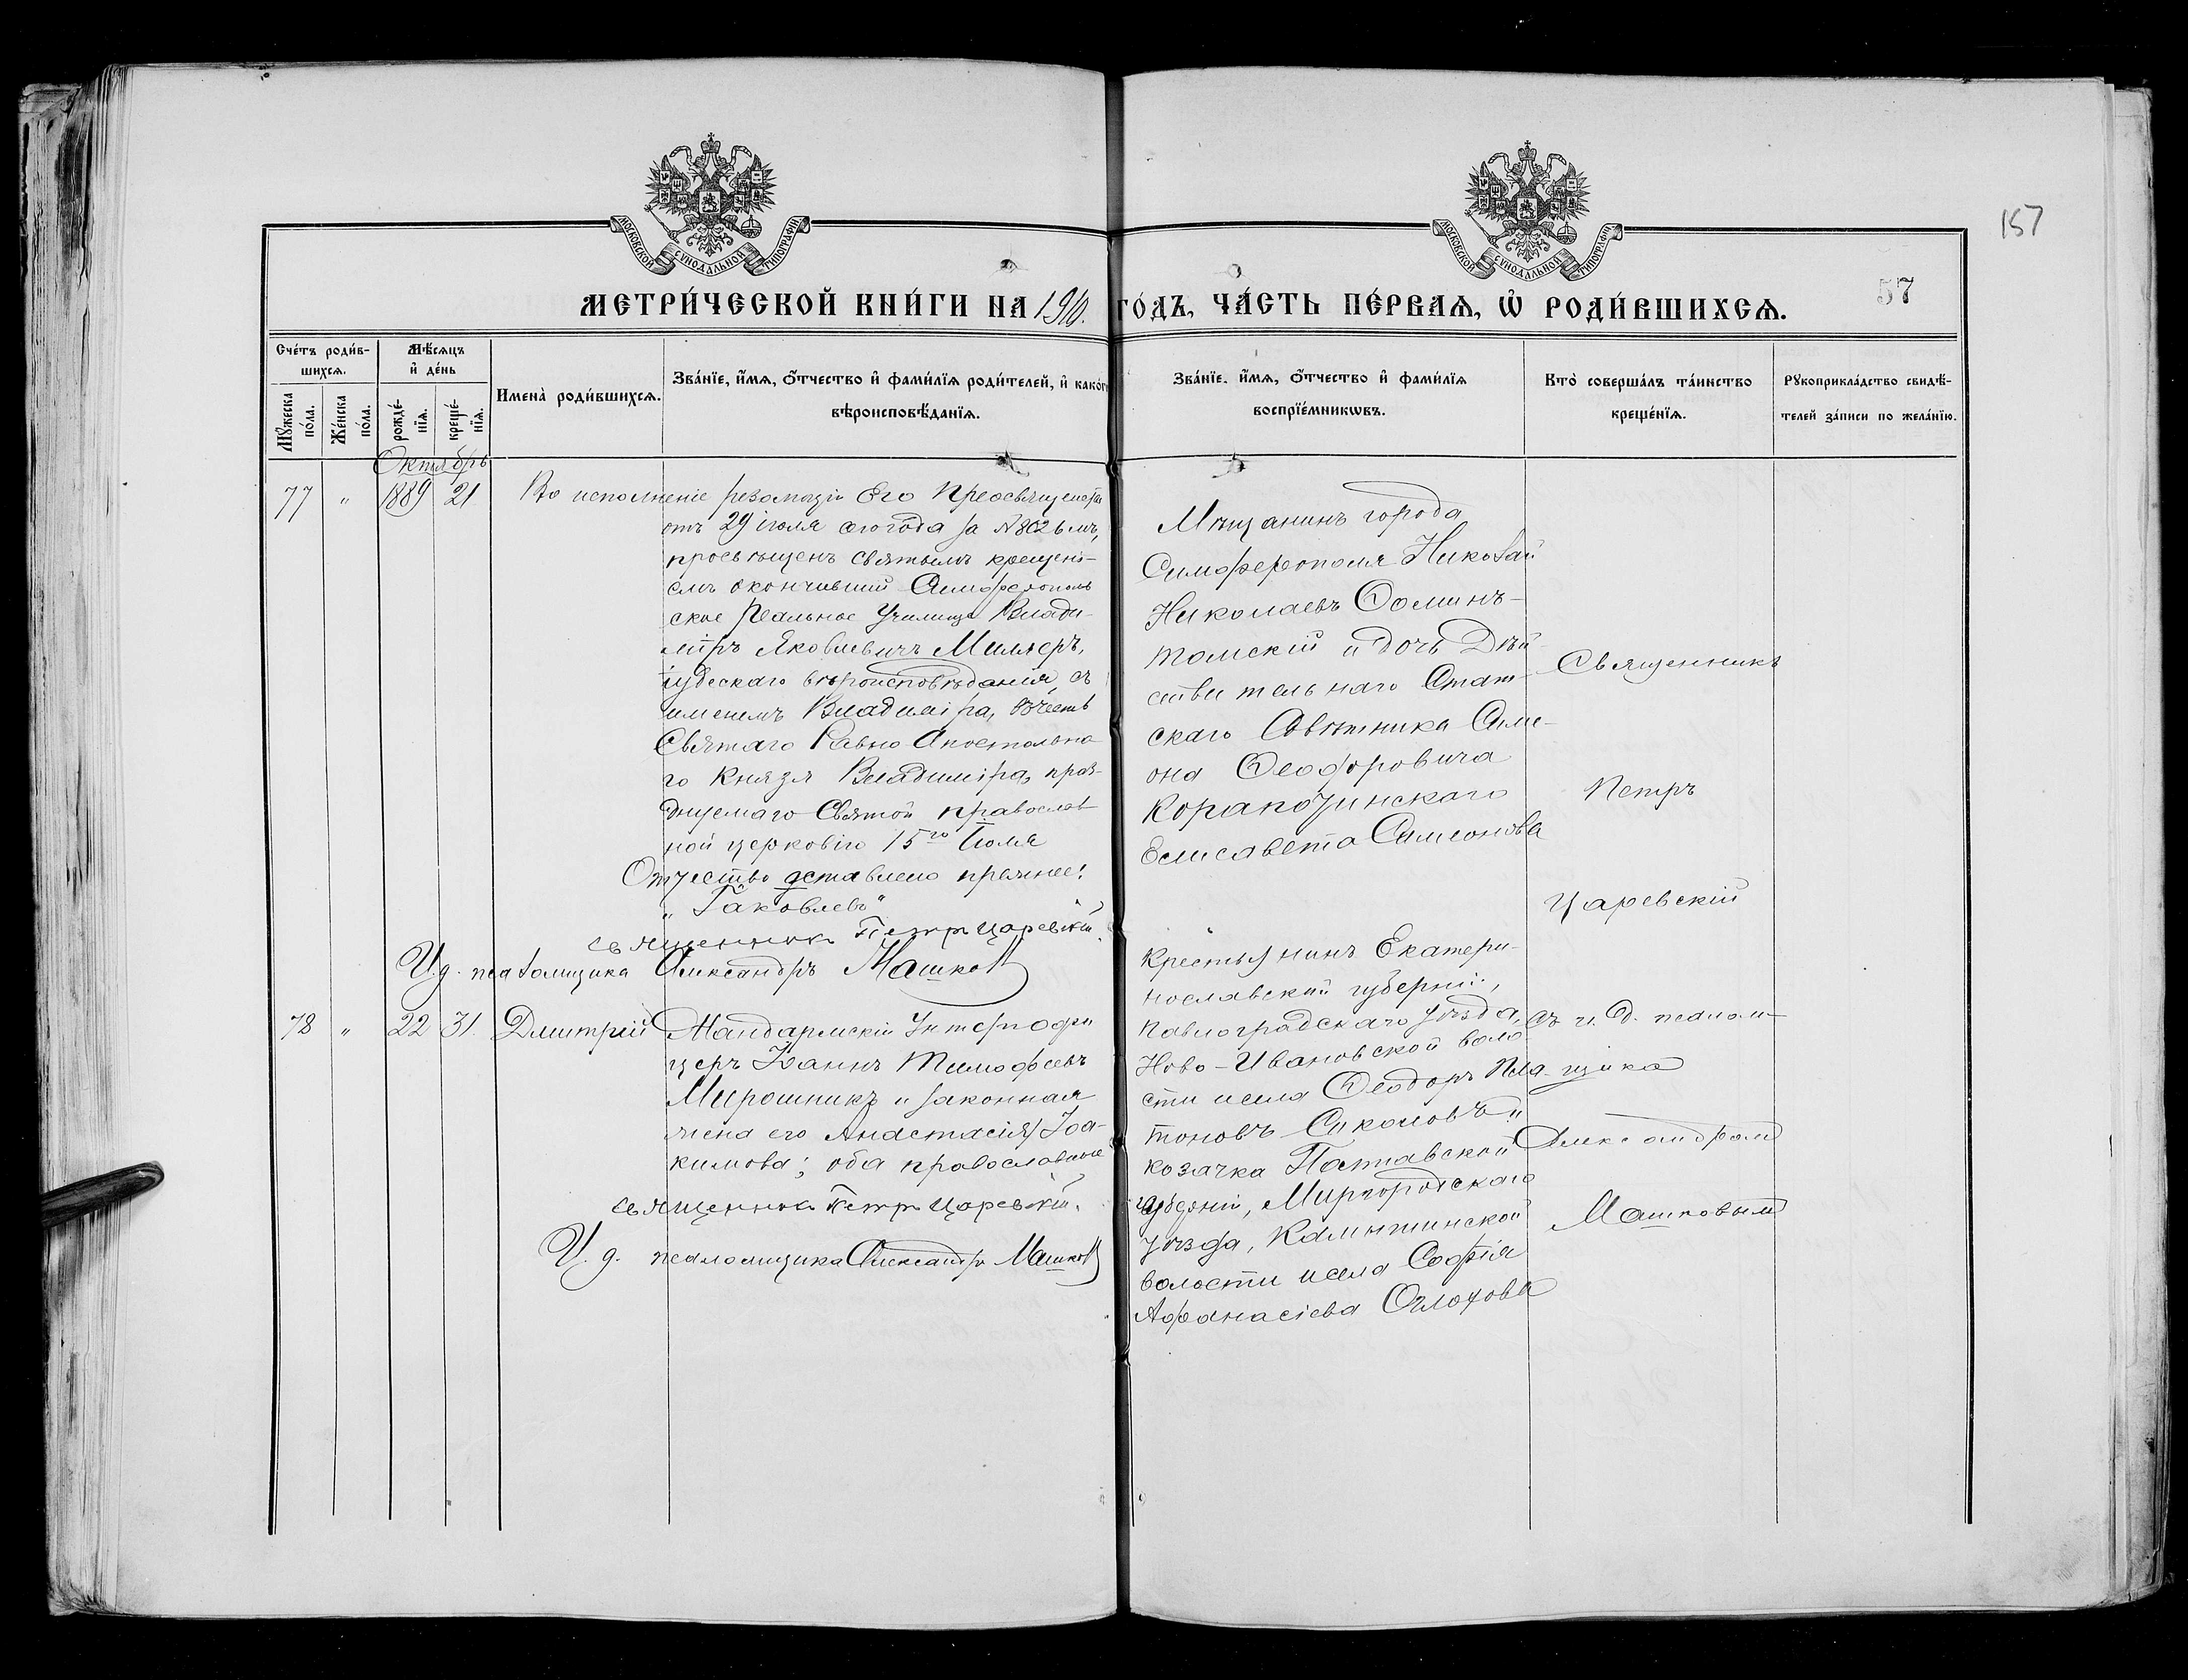 157
МОСКОВСКОЙ СѴНОДАЛЬНОЙ ТИПОГРАФІИ
МОСКОВСКОЙ СѴНОДАЛЬНОЙ ТИПОГРАФІИ
57
МЕТРИ́ЧЕСКОЙ КНИ́ГИ НА 1910. ГО́ДЪ, ЧА́СТЬ ПЕ́РВАѦ, Ѿ РОДИ́ВШИХСѦ.
Сче́тъ роди́в-
шихсѧ.
Мꙋ́жеска по́ла.
Же́нска по́ла.
Мѣ́сѧцъ
и҆ де́нь
рожде́-
нїѧ.
креще́-
нїѧ.
Имена̀ роди́вшихсѧ.
Зва́нїе, и҆́мѧ, ѻ҆́тчество и҆ фами́лїѧ роди́телей, и҆ како́гѡ
вѣроисповѣ́данїѧ.
Зва́нїе, и҆́мѧ, ѻ҆́тчество и҆ фами́лїѧ
воспрїе́мникѡвъ.
Кто̀ соверша́лъ та́инство
креще́нїѧ.
Рꙋкоприкла́дство свидѣ́-
телей за́писи по жела́нїю.
Октябрь
77 " 1889 21 Во исполненіе резолюціи Его Преосвященства
отъ 29 іюля сего года за №8026мъ,
просвѣщенъ святымъ крещені-
емъ окончившій Симферополь
ское Реальное Училище Влади-
міръ Яковлевичъ Миллеръ,
іудескаго вѣроисповѣданія, съ
именемъ Владиміра, въ честь
Святаго Равно Апостольна
го Князя Владиміра, праз-
днуемаго Святой православ
ной церковію 15го Іюля
Отчество оставлено прежнее:
"Іаковлевъ"
священник Петр Царевскій.
И. д. псаломщика Александръ Машков
Мѣщанинъ города
Симферополя Николай
Николаевъ Домин-
томскій и дочь Дѣй-
ствительнаго Стат-
скаго Совѣтника Симе-
она Ѳеодоровича
Елисавета Симеонова
Священникъ
Петръ
Царевскій
78 " 22 31. Дмитрій Жандармскій Унтерофи
церъ Іоаннъ Тимофеевъ
Мирошникъ и законная
жена его Анастасія Іоа-
кимова; оба православные
священник Петр Царевскій.
И. д. псаломщика Александръ Машков
Крестьянинъ Екатери-
нославской губерніи,
Павлоградскаго уѣзда,
Ново-Ивановской воло
сти и села Ѳеодоръ Пла-
тоновъ и
козачка Полтавской
губерніи, Миргородскаго
уѣзда, Камышинской
волости и села Софія
Афанасіева
съ и. д. псалом-
щика
Александромъ
Машковымъ